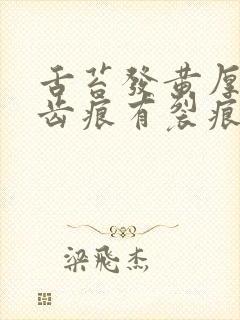 舌苔發黄厚
齿痕有裂痕
梁飛杰